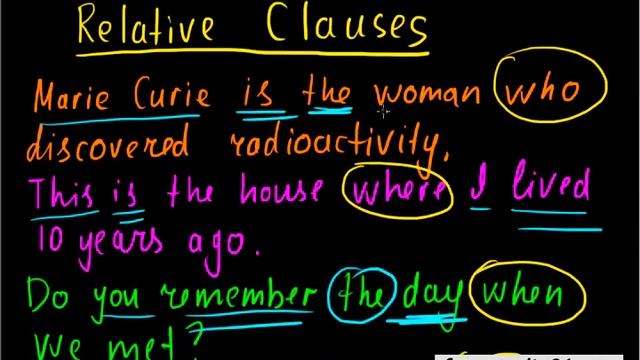 Relative Clauses
Marie Curie is the woman who
discovered radioactivity.
This is the house where I lived
10 years ago.
Do you remember the day when
we met?